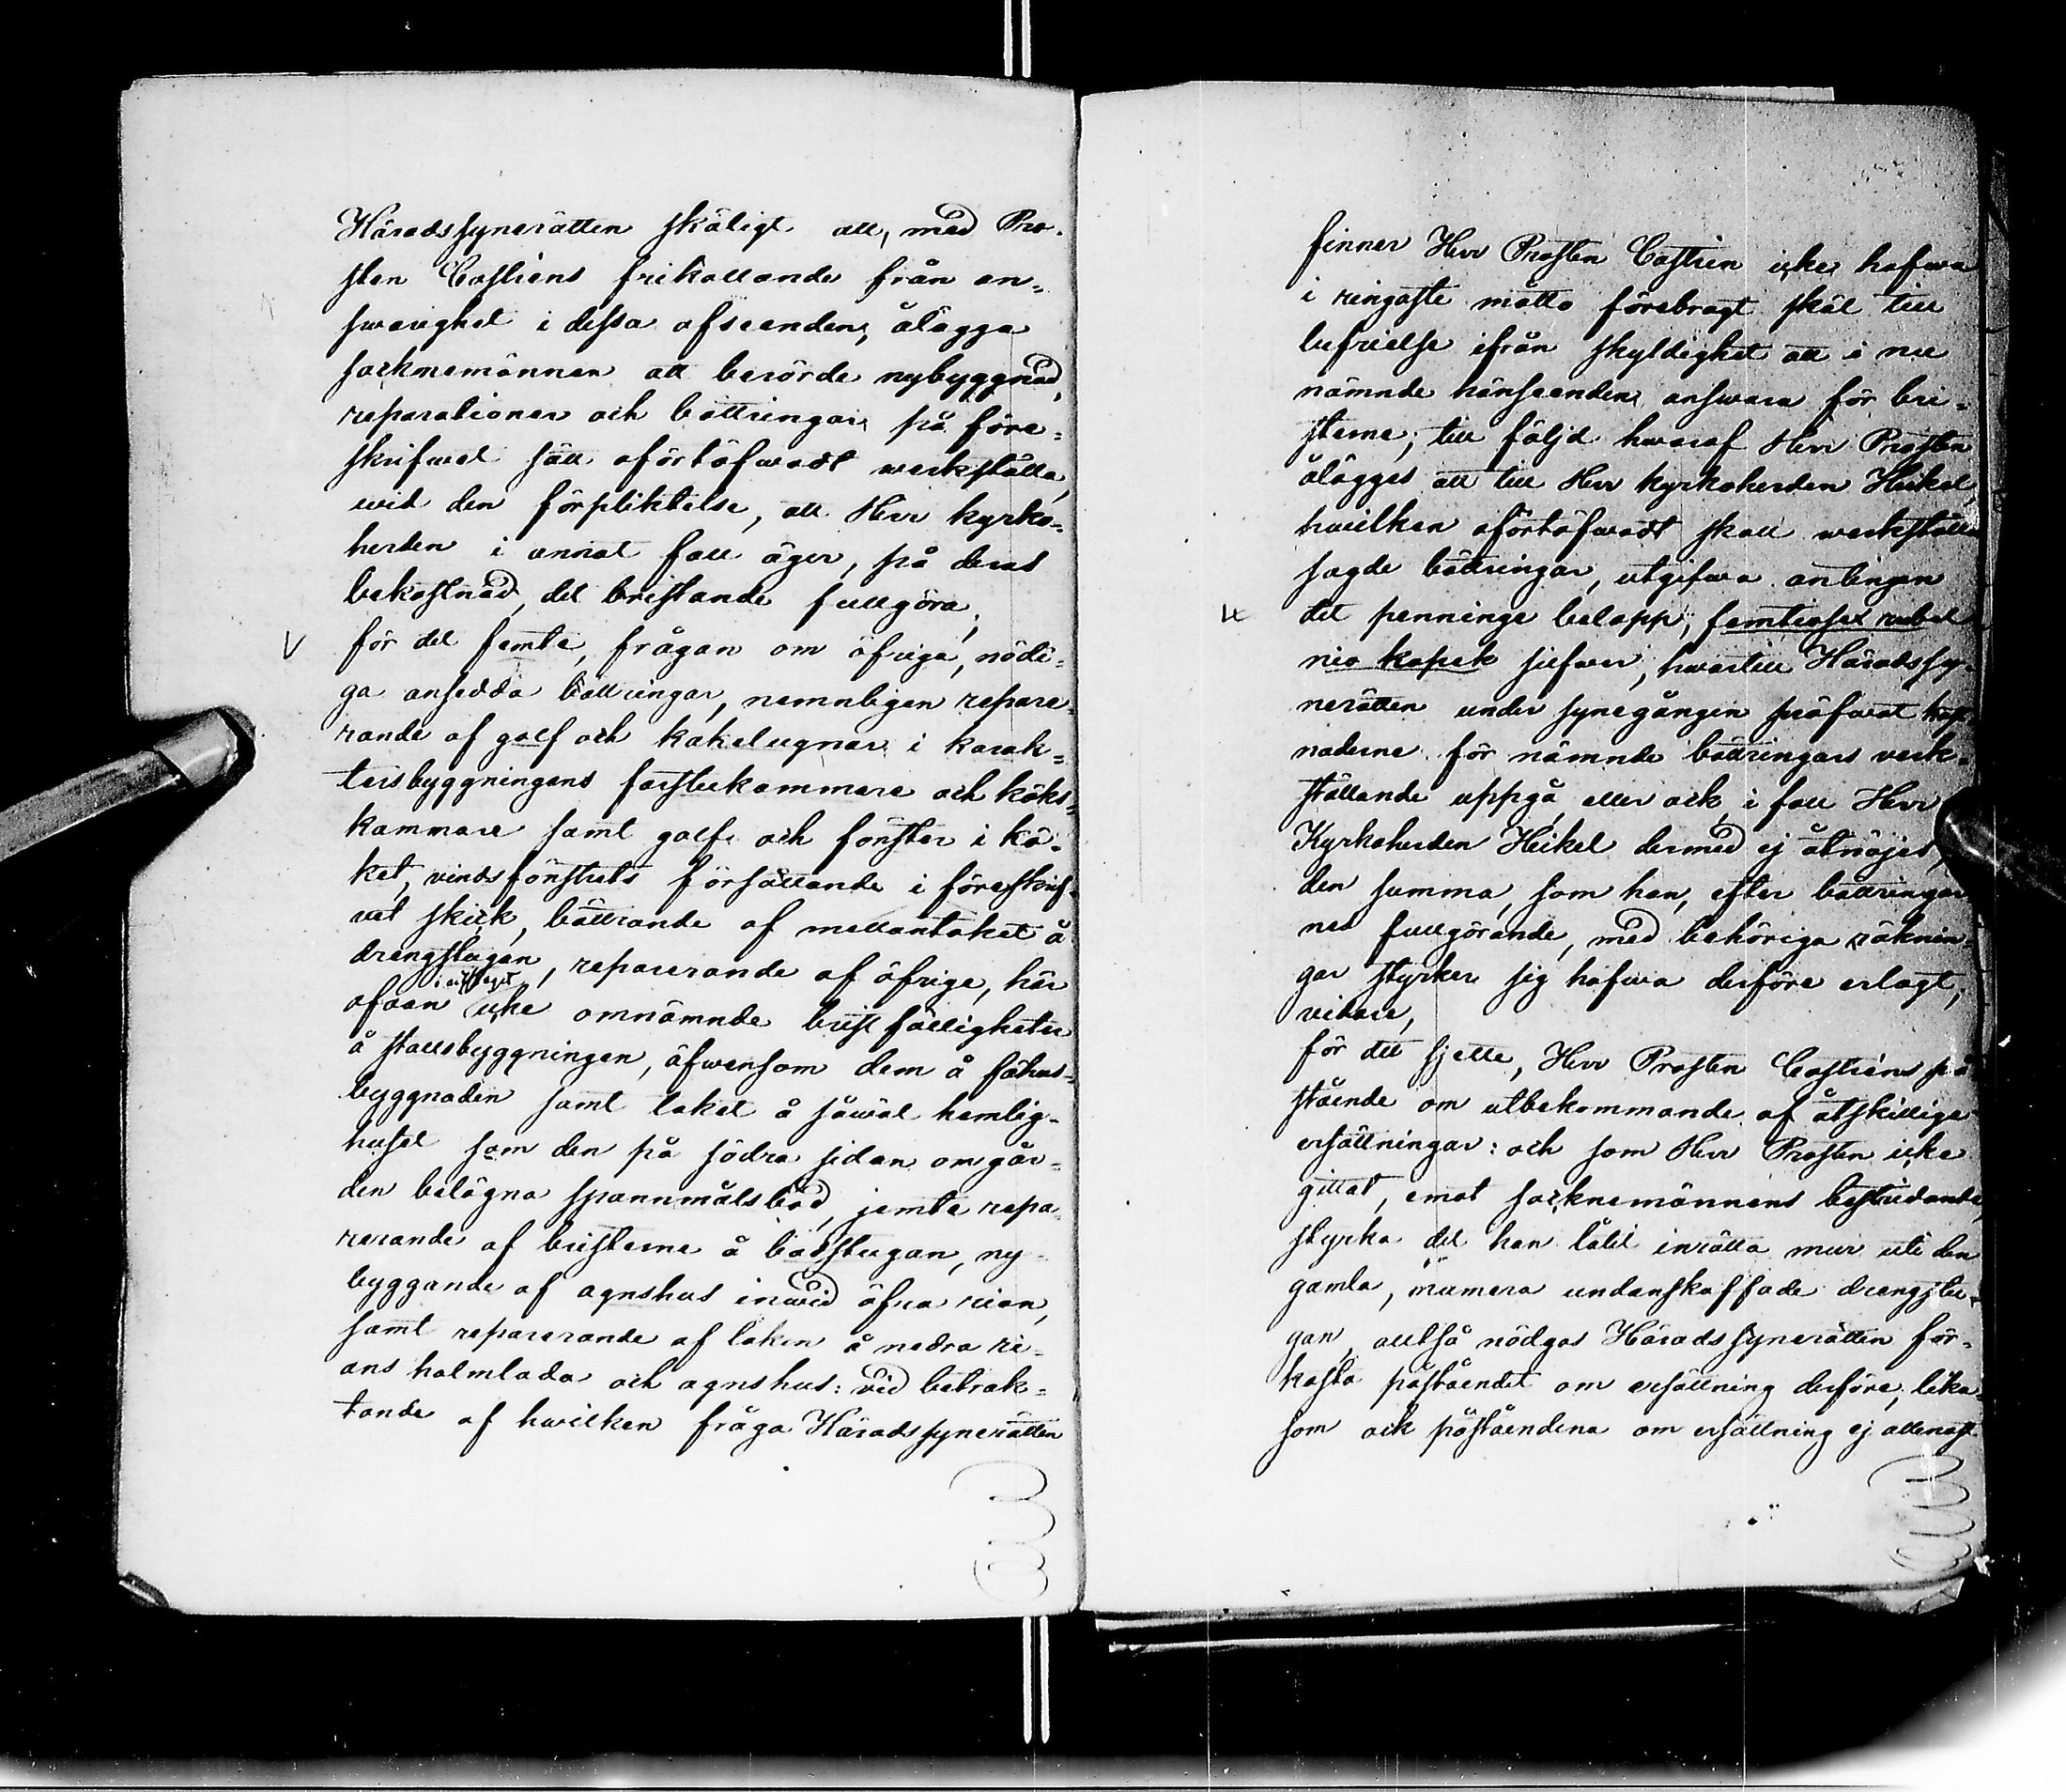 Häradssynerätten skäligt att, med Pro-
sten Castréns frikallande från an-
svarighet i dessa afseenden, ålägga
socknemännen att berörde nybyggnad,
reparationer och bättringar på före-
skrifwet sätt oförtöfwadt werkställa,
wid den förpliktelse, att Herr Kyrko-
herden i annat fall äger, på deras
bekostnad, det bristande fullgöra;
V för det femte, frågan om öfriga, nödi-
ga ansedda bättringar, nemnligen repare-
rande af golf och kakelugnar i karak-
tersbyggningens farstukammare och köks-
kammare samt golf och fönster i kö-
ket, vindsfönstrets försättande i föreskrif-
vet skick, bättrande af mellantaket å
drengstugan, reparerande af öfrige, här
ofvan icke omnämnde bristfälligheter
å stallsbyggningen, äfwensom dem å fähus-
byggnaden samt taket å såwäl hemlig-
huset som den på södra sidan om går-
den belägna spannmålsbod, jemte repa-
rerande af bristerne å badstugan, ny-
byggande af agnshus inwid öfra rian,
samt reparerande af taken å nedra ri-
ans halmlada och agnshus: vid betrak-
tande af hwilken fråga Häradssynerätten
finner Herr Prosten Castrén icke hafwa
i ringaste måtto förebragt skäl till
befrielse ifrån skyldighet att i nu
nämnde hänseenden answara för bri-
sterne; till följd hwaraf Herr Prosten
ålägges att till Herr Kyrkoherden Heikel,
hwilken oförtöfwadt skall werkställa
sagde bättringar, utgifwa antingen
det penninge belopp, femtiosex rubel
nio kopek silfwer, hwartill Häradssy-
nerätten under synegången pröfwat kost-
naderne för nämnde bättringars verk-
ställande uppgå, eller ock, i fall Herr
Kyrkoherden Heikel dermed ej åtnöjes,
den summa, som han, efter bättringar-
nes fullgörande, med behöriga räknin-
gar styrker sig hafwa derföre erlagt;
vidare,
för det sjette, Herr Prosten Castréns på-
stående om utbekommande af åtskillige
ersättningar: och som Herr Prosten icke
gittat, emot socknemännens bestridande,
styrka det han låtit inrätta mur uti den
gamla, numera undanskaffade drengstu-
gan, alltså nödgas Häradssynerätten för-
kasta påståendet om ersättning derföre, lika-
som ock påståendena om ersättning ej allenast